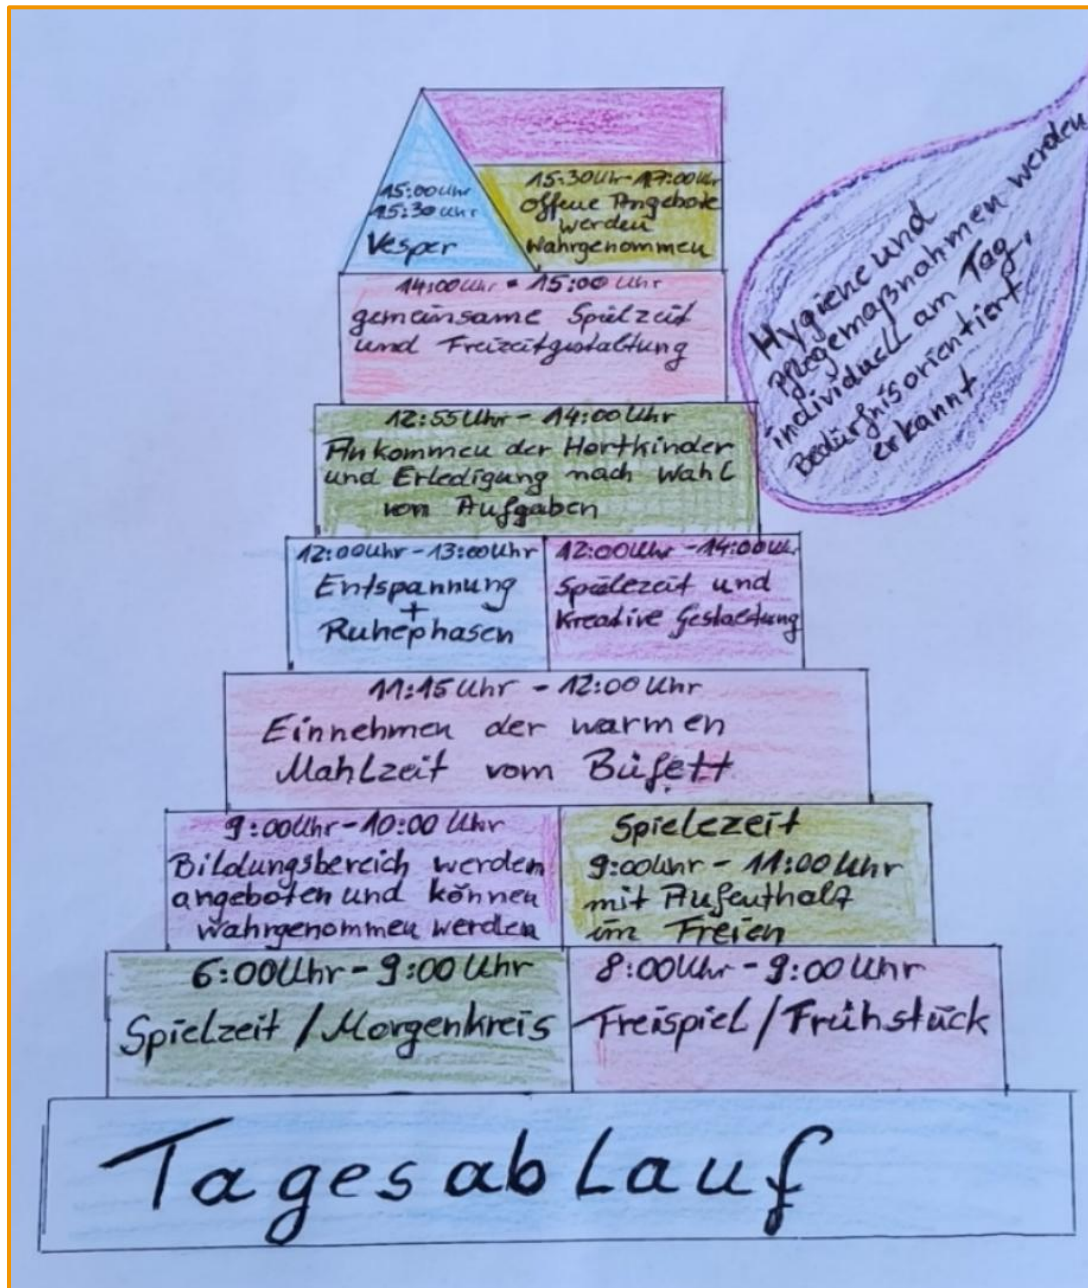 15:00Uhr
15:30Uhr
Vesper
15:30Uhr-17:00Uhr
offene Angebote
werden
wahrgenommen
14:00Uhr - 15:00Uhr
gemeinsame Spielzeit
und Freizeitgestaltung
Hygiene und
Pflegemaßnahmen werden
individuell am Tag,
Bedürfnisorientiert
erkannt
12:55Uhr - 14:00Uhr
Ankommen der Hortkinder
und Erledigung nach Wahl
von Aufgaben
12:00Uhr-13:00Uhr
Entspannung
+
Ruhephasen
12:00Uhr-14:00Uhr
Spielezeit und
Kreative Gestaltung
11:15Uhr - 12:00Uhr
Einnehmen der warmen
Mahlzeit vom Büfett
9:00Uhr-10:00Uhr
Bildungsbereich werden
angeboten und können
wahrgenommen werden
Spielezeit
9:00Uhr - 11:00Uhr
mit Aufenthalt
im Freien
6:00Uhr-9:00Uhr
Spielzeit / Morgenkreis
8:00Uhr-9:00Uhr
Freispiel / Frühstück
Tagesablauf